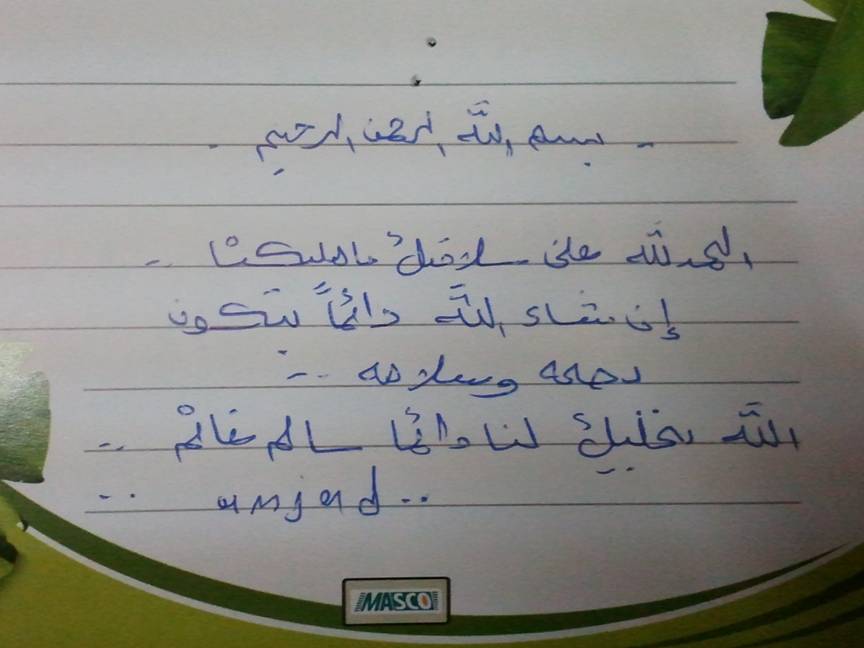 - بسم الله الرحمن الرحيم -
الحمدلله على سلامتك ..
إن شاء الله دائماً بتكون
بصحه وسلامه ..
الله يخليك لنا دائما سالم غانم ..
amjad ..
MASCO